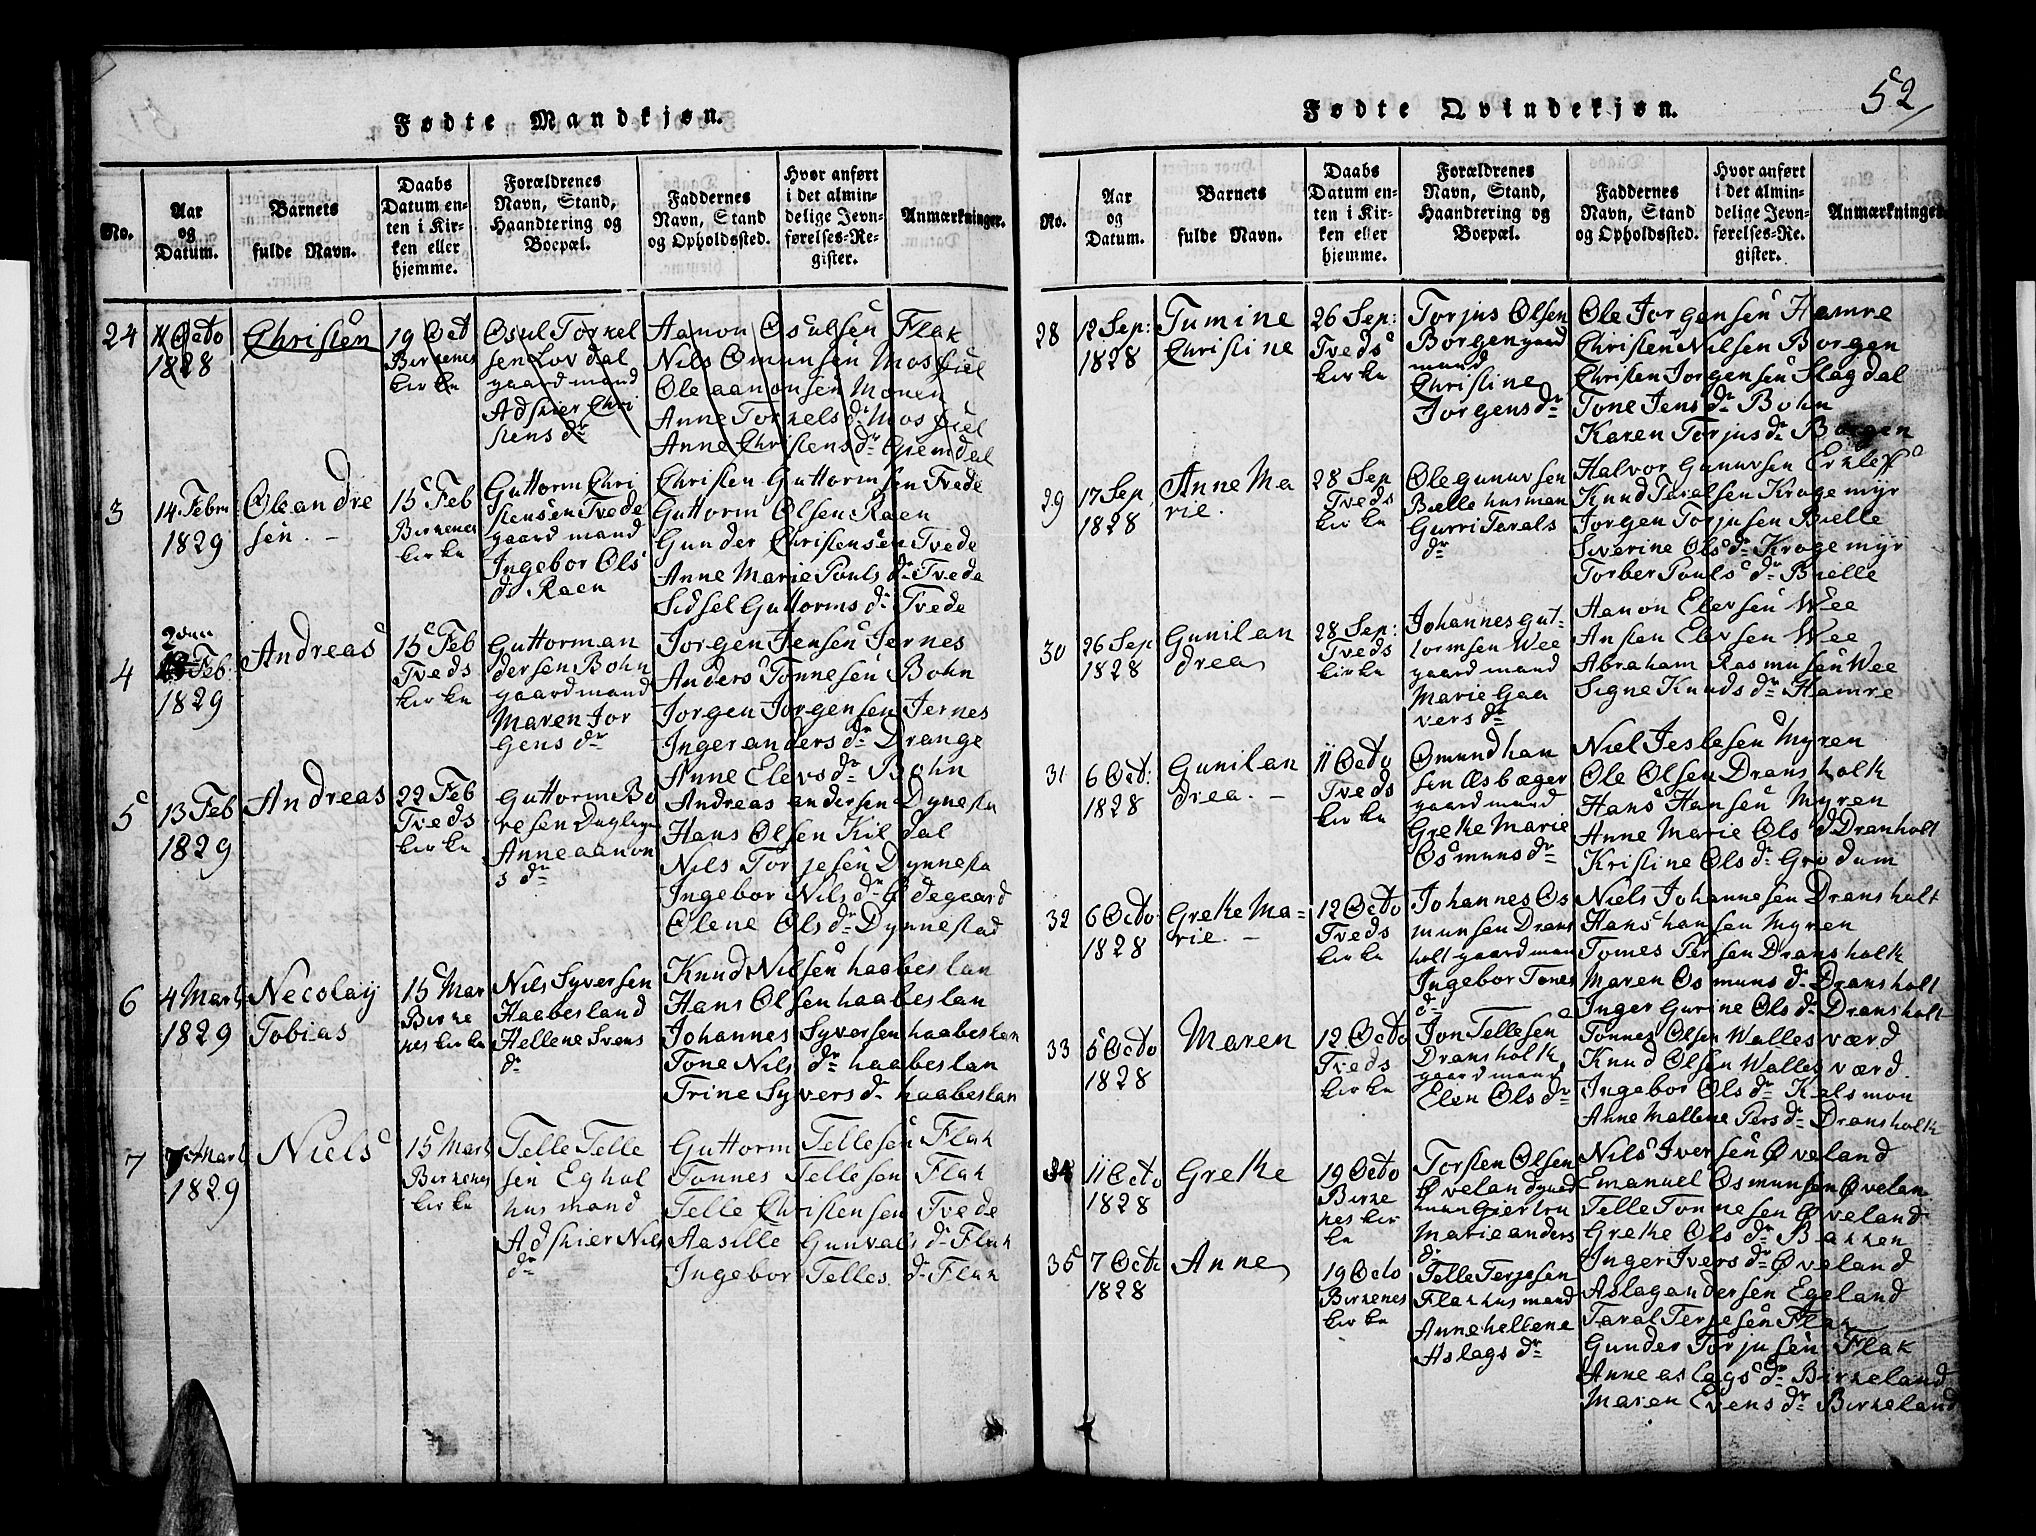 Fødte Mandkjøn.
No.
Aar
og
Datum.
Barnets
fulde Navn.
Daabs
Datum en-
ten i Kir-
ken eller
hjemme.
Forældrenes
Navn, Stand,
Haandtering og
Boepæl.
Faddernes
Navn, Stand
og Opholdssted.
Hvor anført
i det almin-
delige Jevn-
førelses-Re-
gister.
Anmærkninger.
24
11 Octo
1828
Christen
19 Oct
Birkenes
kirke
Osul Torkel
sen Lovdal
gaardmand
Adskier Chri
stens dr
Aanon Osulsen Flak
Nils Omunsen Mosfiel
Ole aanonsen Monen
Anne Torkels dr Mosfiel
Anne Christens dr Giemdal
3
14 Febru
1829
Oleandre
sen. -
15 Feb
Birkenes
kirke
Guttorm Chri
stensen Tvede
gaardmand
Ingebor Ols
dr Raen
Christen Guttormsen Tvede
Guttorm Olsen Raen
Gunder Christensen Tvede
Anne Marie Pouls dr Tvede
Sidsel Guttorms dr Tvede
4
2den
Feb.
1829
Andreas
15 Feb
Tveds
kirke
Guttorm an
dersen Bohn
gaardmand
Maren Jor
gens dr
Jorgen Jensen Jernes
Anders Tonnesen Bohn
Jorgen Jorgensen Jernes
Inger anders dr Drange
Anne Elevs dr Bohn
5
13 Feb
1829
Andreas
22 Feb
Tveds
kirke
Guttorm Bo
resen
Anne aanon
s dr
Andreas andersen Dynesta
Hans Olsen Kildal
Nils Torjesen Dynnesta
Ingebor Nils dr Ødegaard
Olene Ols dr Dynnestad
6
4 Marti
1829
Necolay
Tobias
15 Mar
Birke
nes kirke
Nils Syversen
Haabesland
Hellene Svens
dr
Knud Nilsen haabeslan
Hans Olsen haabeslan
Johannes Syversen haabeslan
Tone Nils dr haabeslan
Trine Syvers dr haabeslan
7
7 Mart
1829
Niels
15 Mart
Birkenes
kirke
Telle Telle
sen Eghol
husmand
Adskier Nils
dr
Guttorm Tellesen Flak
Tonnes Tellesen Flak
Telle Christensen Tvede
Aasille Gunvals dr Flak
Ingebor Telles dr Flak
52
Fødte Qvindekjøn.
No.
Aar
og
Datum.
Barnets
fulde Navn.
Daabs
Datum en-
ten i Kir-
ken eller
hjemme.
Forældrenes
Navn, Stand,
Haandtering og
Boepæl.
Faddernes
Navn, Stand
og Opholdssted.
Hvor anført
i det almin-
delige Jevn-
førelses-Re-
gister.
Anmærkninger
28
12 Sep:
1828
Tumine
Christine
26 Sep:
Tveds
kirke
Torjus Olsen
Borgen gaard
mand
Christine
Jorgens dr
Ole Jorgensen Hamre
Christen Nilsen Borgen
Christen Jorgensen Slagdal
Tone Jens dr Bohn
Karen Torjus dr Borgen
29
17 Sep
1828
Anne Ma
rie.
28 Sep
Tveds
kirke
Ole gunuvsen
Bielle husman
Gurri Terals
dr
Halvor Gunuvsen
Knud Teralsen Kragemyr
Jorgen Torjusen Bielle
Siverine Ols dr Kragemyr
Torber Pouls dr Bielle
30
26 Sep
1828
Gunil an
drea
28 Sep:
Tveds
kirke
Johannes Gut-
tormsen Wee
gaardmand
Marie Gaa
vers dr
Aanon Elevsen Wee
Ansten Elevsen Wee
Abraham Rasmusen Wee
Signe Knuds dr Hamre
31
6 Oct:
1828
Gunil an
drea. -
11 Octo
Tveds
kirke
Omund han
sen Æsbæger
gaardmand
Grethe Marie
Osmuns dr
Niel Jeslesen Myren
Ole Olsen Dransholt
Hans Hansen Myren
Anne Marie Ols dr Dranholt
Kristine Ols dr Grødum
32
6 Octo
1828
Grethe Ma-
rie. -
12 Octo
Tveds
kirke
Johannes Os
munsen Drans
holt gaardman
Ingebor Tones
dr
Niels Johannesen Dransholt
Hans hansen Myren
Tomes Persen Dransholt
Maren Osmuns dr Dransholt
Inger Gurine Ols dr Dransholt
33
5 Octo
1828
Maren
12 Octo
Tveds
kirke
Jon Tellesen
Dransholt
gaardmand
Elen Ols dr
Tonnes Olsen Wallesværd
Knud Olsen Wallesværd.
Ingebor Ols dr Kalsmon
Anne Mallene Pers dr Dransholt
34
11 Octo
1828
Grethe
19 Octo
Birke
nes kir
ke
Torsten Olsen
Øveland gaard
man
Marie anders
dr
Nils Iversen Øveland
Emanuel Osmunsen Øvelan
Telle Tonnesen Øveland
Grethe Ols dr Bakken
Inger Ivers dr Øveland
35
7 Octo
1828
Anne
19 Octo
Birkenes
kirke
Telle Terjesen
Flak husmand
Anne hellene
Aslags dr
Aslag andersen Egeland
Taral Terjesen Flak
Gunder Torjusen Flak
Anne aslags dr Birkeland
Maren Evens dr Birkeland